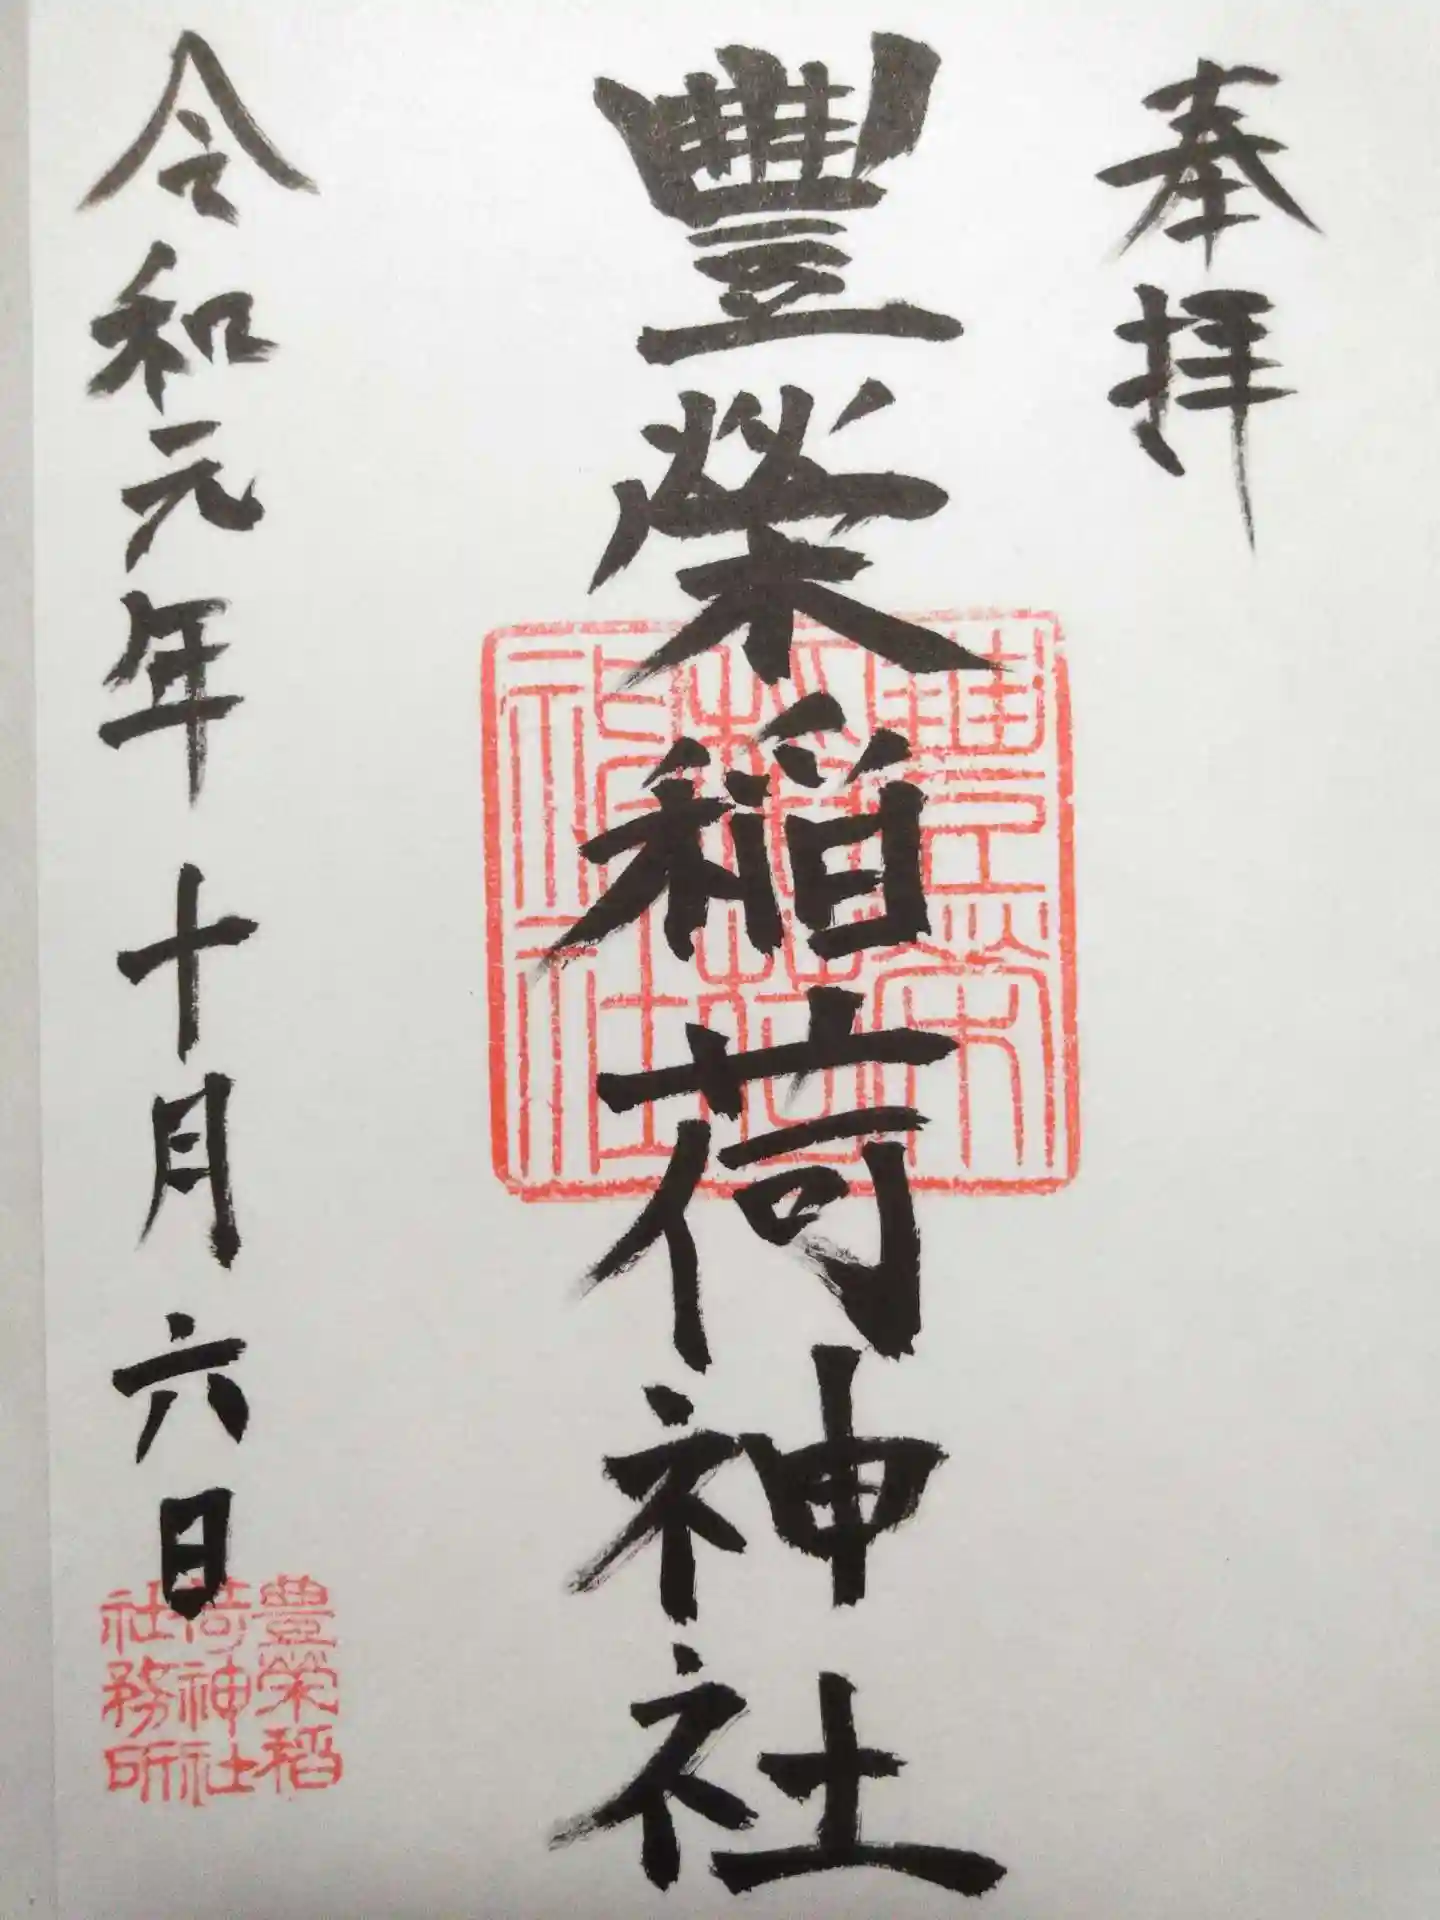 奉拝
豐榮稲荷神社
豊栄稲荷神社
令和元年十月六日
豊榮稲
荷神社
社務所